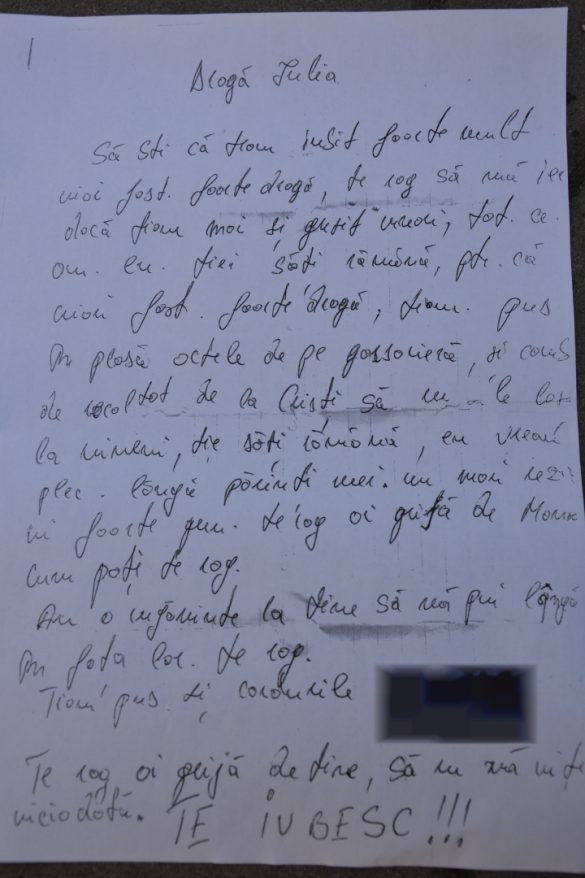 Dragă Iulia
Să sti că tiam iubit foarte mult
miai fost. foarte dragă, te rog să mă ier
dacă tiam mai și gresit vreodi, tot. ce.
am. eu. tiei săti rămână, ptr. că
miai fost. foarte dragă, tiam. pus
în plasă actele de pe garsonieră, si
de la Cristi să nu le
la nimeni, tie săti rămână, eu vreau
plec. lângă părinti mei. nu mai
foarte greu. te rog ai grijă de
cum poți te rog.
Am o rugăminte la tine să mă pui lângă
în fata lor. te rog.
Tiam pus. și cardurile
Te rog ai grijă de tine, să nu mă uiți
niciodată. TE IUBESC !!!